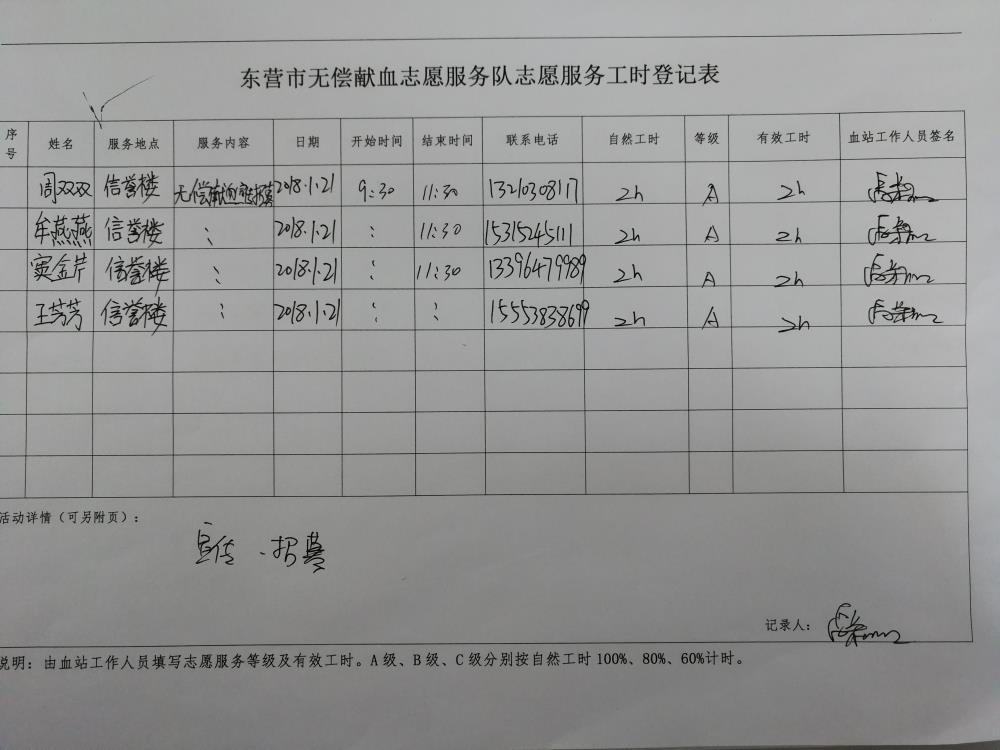 东营市无偿献血志愿服务队志愿服务工时登记表
序号 姓名 服务地点 服务内容 日期 开始时间 结束时间 联系电话 自然工时 等级 有效工时 血站工作人员签名
周双双 信誉楼 无偿献血宣传招募 2018.1.21 9:30 11:30 13210308117 2h A 2h
牟燕燕 信誉楼 : 2018.1.21 : 11:30 15315245111 2h A 2h
窦金芹 信誉楼 : 2018.1.21 : 11:30 13396479989 2h A 2h
王芳芳 信誉楼 : 2018.1.21 : : 15553838699 2h A 2h
活动详情（可另附页）：
宣传、招募
记录人：
说明：由血站工作人员填写志愿服务等级及有效工时。A级、B级、C级分别按自然工时100%、80%、60%计时。